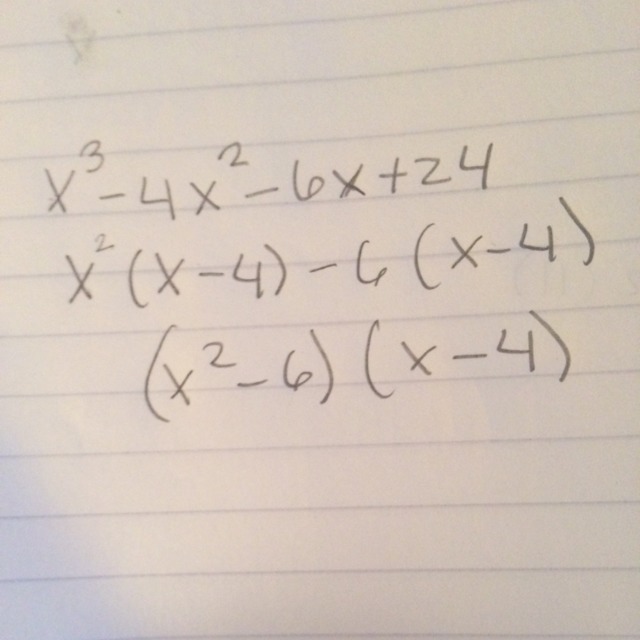 x³-4x²-6x+24
x²(x-4)-6(x-4)
(x²-6)(x-4)